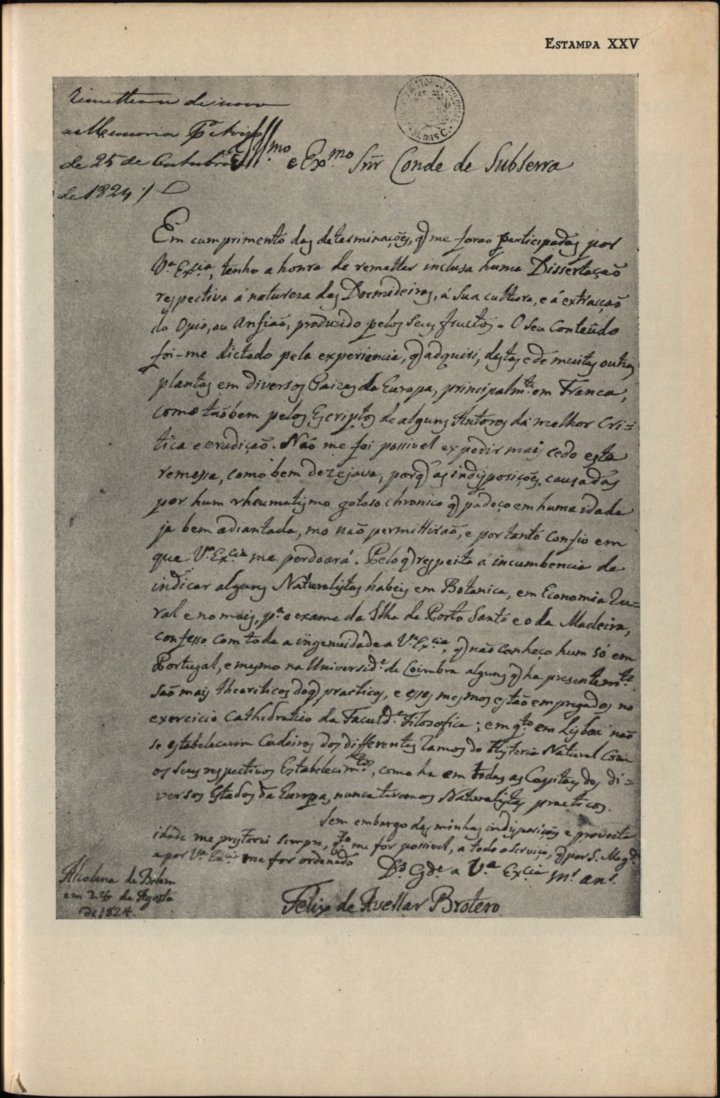 Estampa XXV
Remetteu de novo
a Memoria
de 25 de Outubro
de 1824
Ill.mo e Ex.mo Snr Conde de Subserra
Em cumprimento das determinações, q̃ me forão participadas por
V.ª Ex.cia, tenho a honra de remetter inclusa huma Dissertação
respectiva á natureza das Dormideiras, á sua cultura, e á extracção
do Opio, ou Anfião, produzido pelos seus fructos. O seu Conteúdo
foi-me dictado pela experiencia, q̃ adquiri, destas e de muitas outras
plantas em diversos Paizes da Europa, principalm.te em Franca,
como tãobem pelos Escriptos de alguns Autores da melhor Cri-
tica e erudição. Não me foi possivel expedir mais cedo esta
remessa, como bem dezejava, porq̃ as indisposições, causadas
por hum rheumatismo gotoso chronico q̃ padeço em huma idade
ja bem adiantada, mo não permittirão, e portanto confio em
que V.ª Ex.cia me perdoará. Pelo q̃ respeita á incumbencia de
indicar alguns Naturalistas habeis em Botanica, em Economia Ru-
ral e no mais, p.ª o exame da Ilha de Porto Santo e o da Madeira,
confesso com toda a ingenuidade a V.ª Ex.cia, q̃ não conheço hum só em
Portugal, e mesmo na Universid.e de Coimbra alguns q̃ ha presentem.te
são mais theoreticos do q̃ practicos, e esses mesmos estão empregados no
exercicio Cathedratico da Faculd.e Filosofica; em q.to em Lisboa não
se estabelecerem Cadeiras dos differentes ramos da Historia Natural com
os seus respectivos Estabelecim.tos, como ha em todas as Capitaes dos di-
versos Estados da Europa, nunca teremos Naturalistas practicos.
Sem embargo das minhas indisposições e provecta
idade me prestarei sempre, q.to me for possivel, a todo o serviço, q̃ por S. Mag.de
e por V.ª Ex.cia me for ordenado
D.s G.de a V.ª Ex.cia m.s an.s
Alcolena de Belem
em 26 de Agosto
de 1824.
Felix de Avellar Brotero